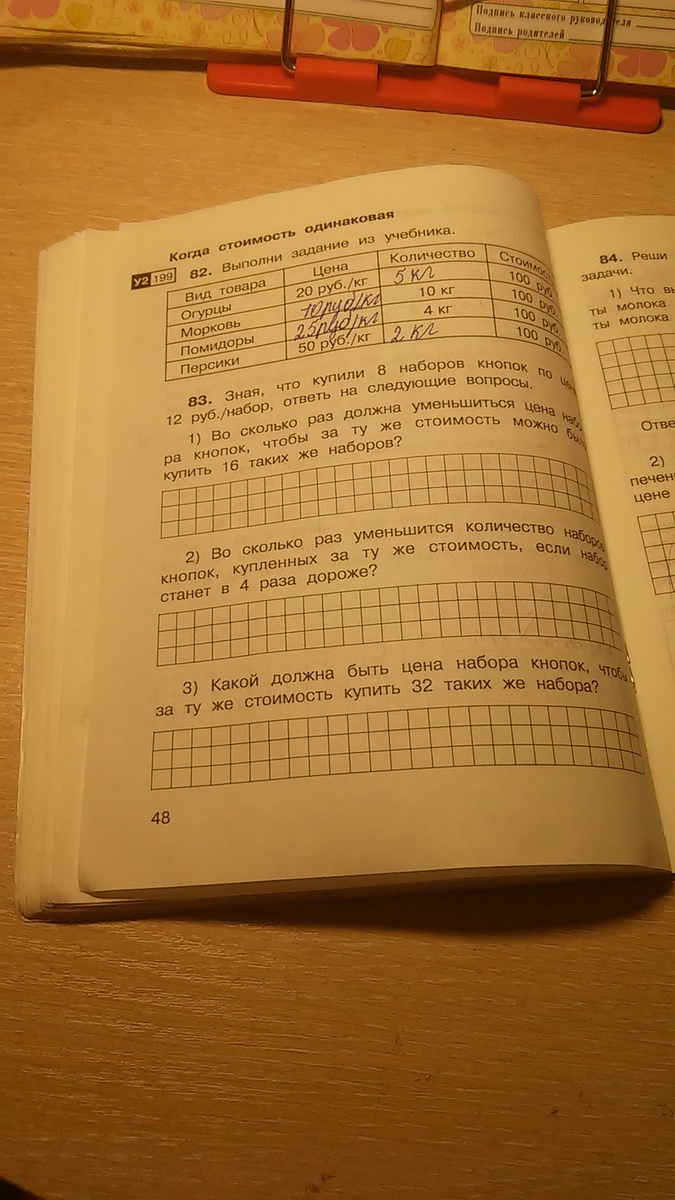 Подпись классного руководителя
Подпись родителей
Когда стоимость одинаковая
У2 199 82. Выполни задание из учебника.
Вид товара Цена Количество Стоимость
Огурцы 20 руб./кг 5 кг 100 руб.
Морковь 10 руб/кг 10 кг 100 руб.
Помидоры 25 руб/кг 4 кг 100 руб.
Персики 50 руб./кг 2 кг 100 руб.
83. Зная, что купили 8 наборов кнопок по
12 руб./набор, ответь на следующие вопросы.
1) Во сколько раз должна уменьшиться цена набо
ра кнопок, чтобы за ту же стоимость можно было
купить 16 таких же наборов?
2) Во сколько раз уменьшится количество наборов
кнопок, купленных за ту же стоимость, если набор
станет в 4 раза дороже?
3) Какой должна быть цена набора кнопок, чтобы
за ту же стоимость купить 32 таких же набора?
48
84. Реши
задачи.
1) Что
ты молока
ты молока
Отве
2)
печен
цене